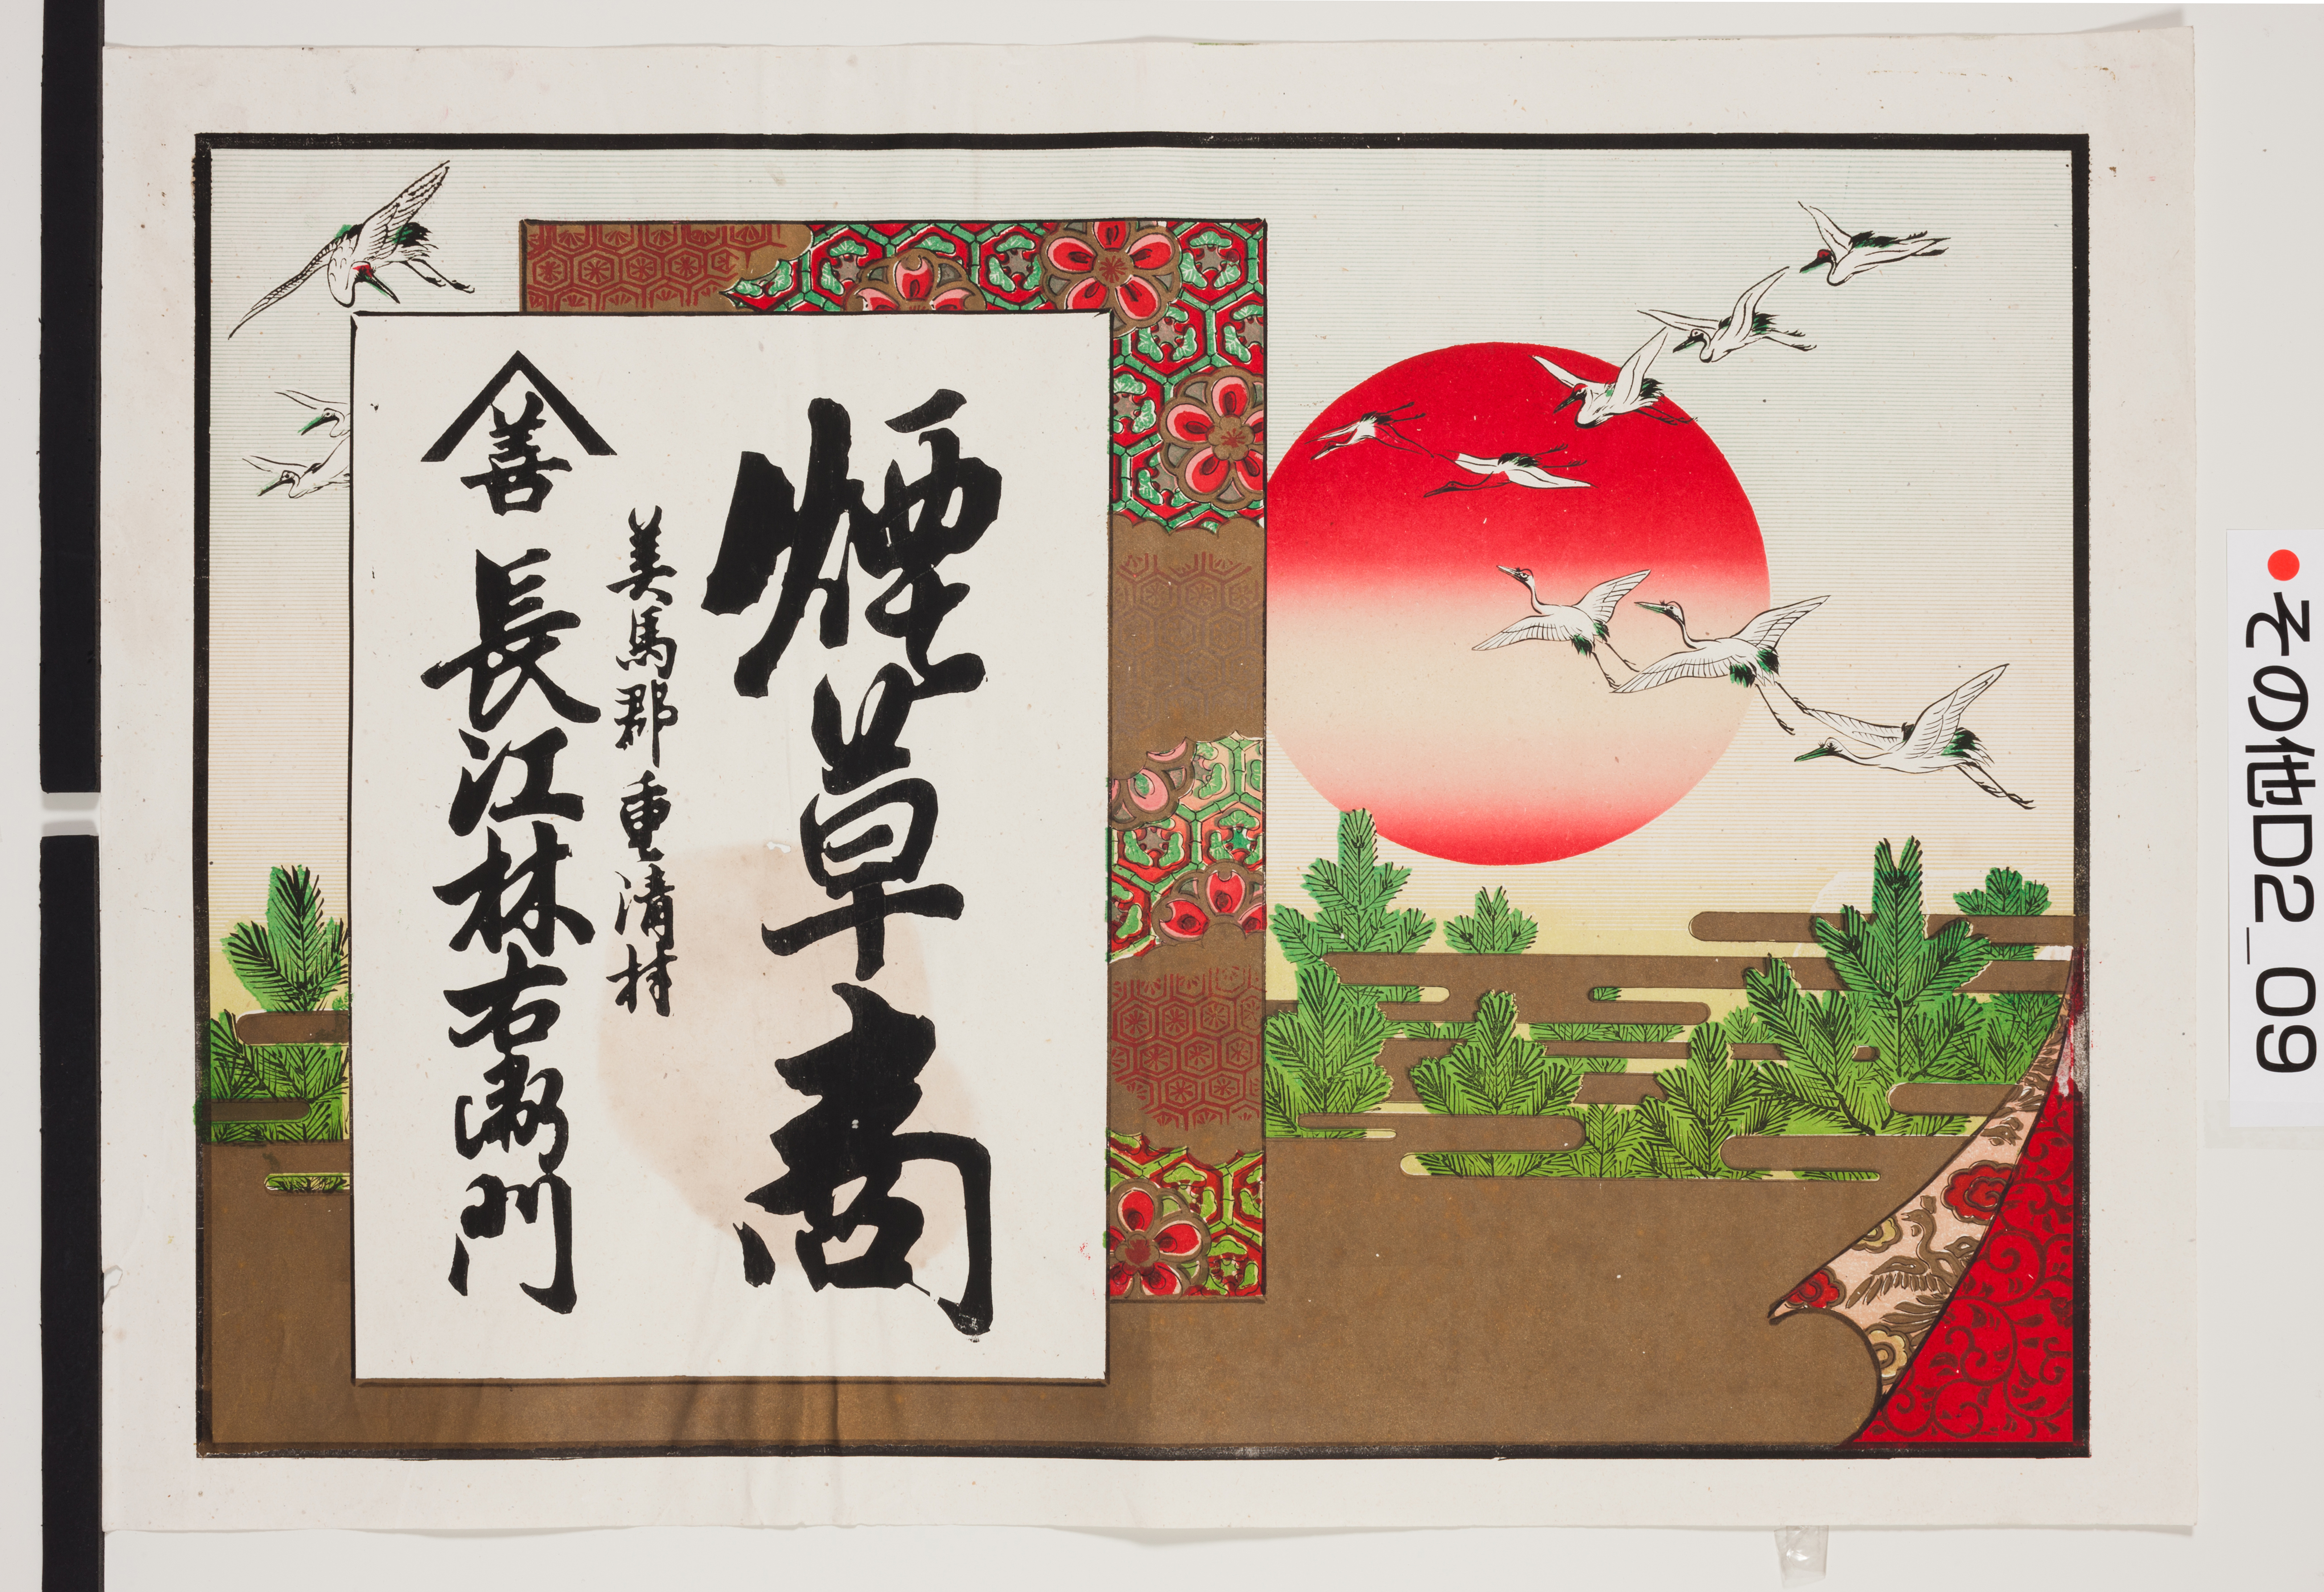 煙草商
美馬郡重清村
善 長江林右衛門
●その他D2_09